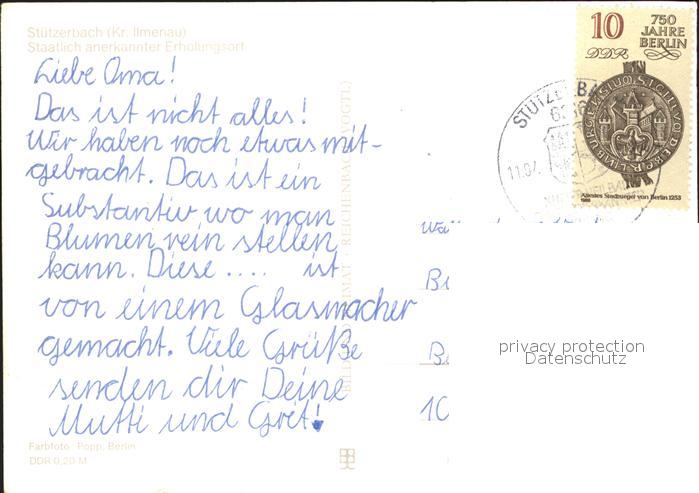 Stützerbach (Kr. Ilmenau)
Staatlich anerkannter Erholungsort
Liebe Oma!
Das ist nicht alles!
Wir haben noch etwas mit-
gebracht. Das ist ein
Substantiv wo man
Blumen rein stellen
kann. Diese .... ist
von einem Glasmacher
gemacht. Viele Grüße
senden dir Deine
Mutti und Grit!
Farbfoto: Popp, Berlin
DDR 0,20 M
10
750
JAHRE
BERLIN
DDR
Ältestes Stadtsiegel von Berlin 1253
1986
11.04.
B
10
privacy protection
Datenschutz